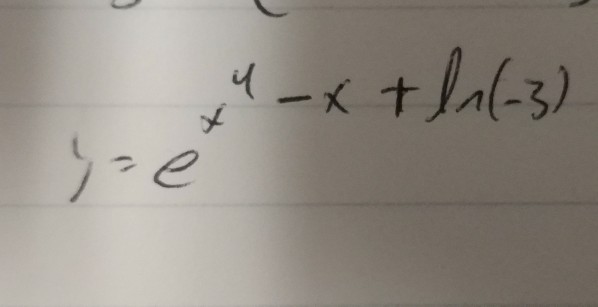 y = e^{x^4 - x + ln(-3)}